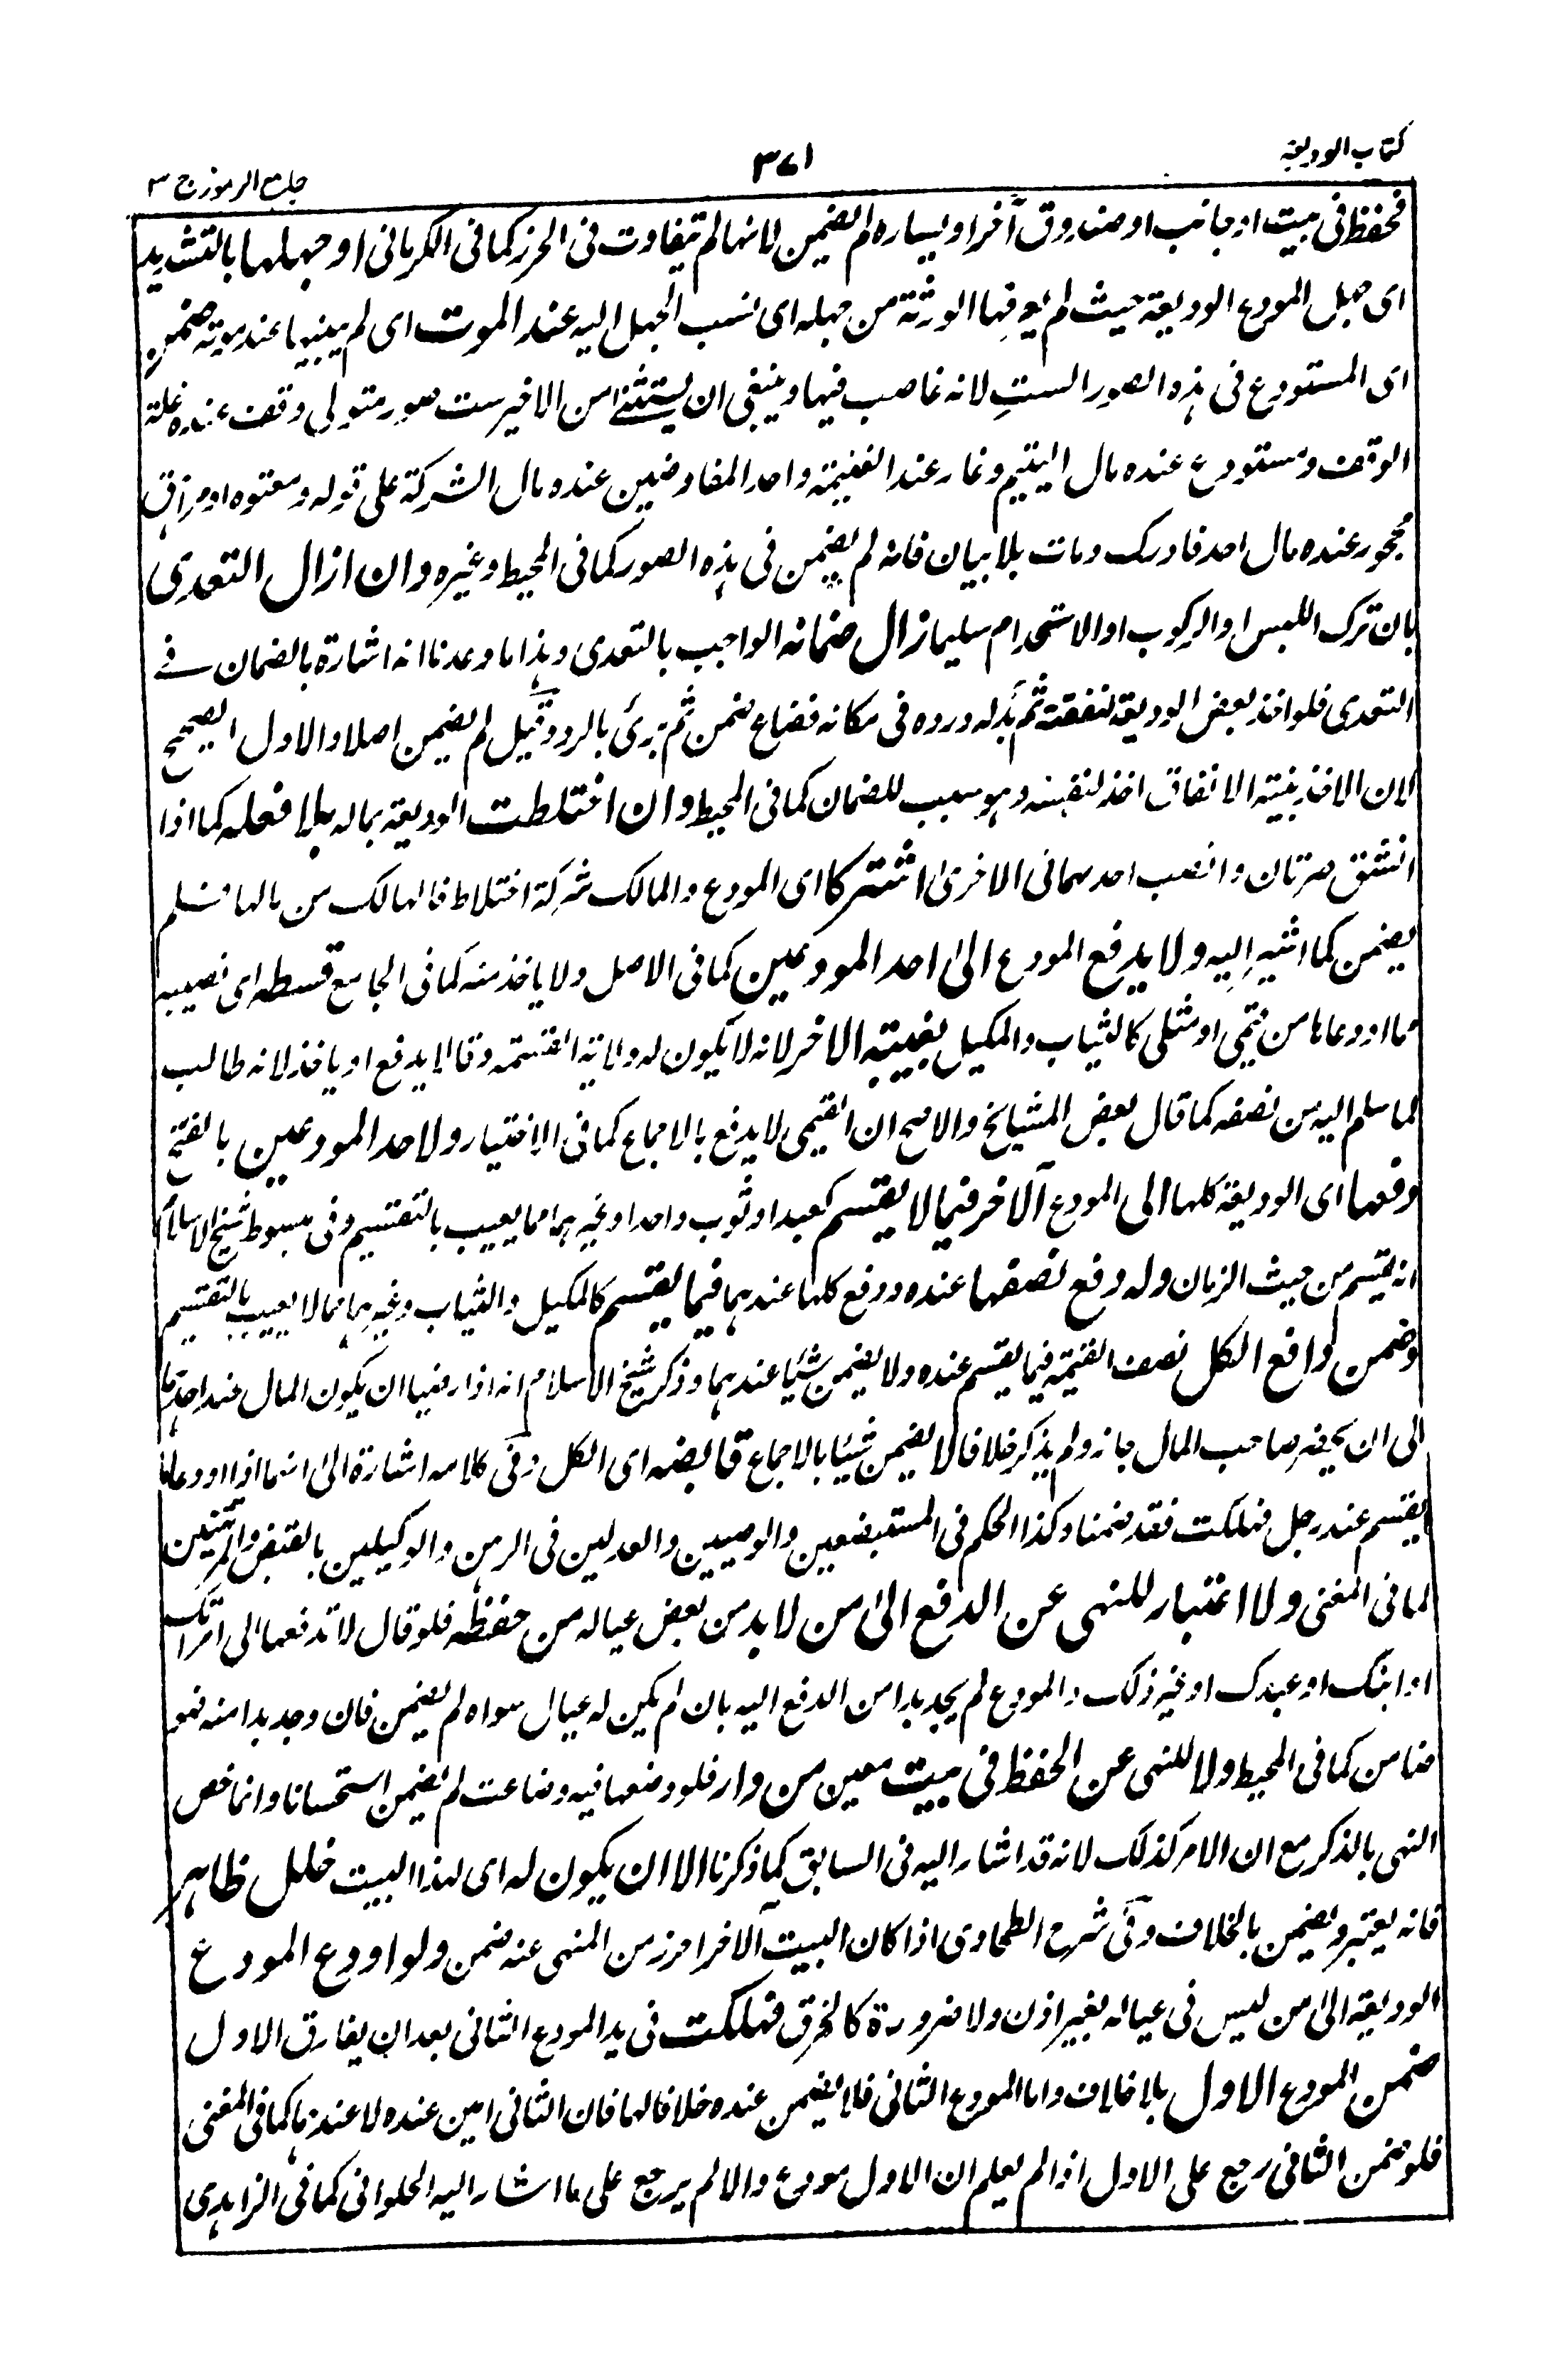 كتاب الوديعة
٣٧١
جامع الرموز ج ٣
فحفظ فى بيت او جانب او صندوق آخر او يساره لم يضمن لانها لم تتفاوت فى الحرز كما فى الكرمانى او جهلها بالتشديد
اى جهل المودع الوديعة حيث لم يعرفها الورثة من جهله اى انسب الجهل اليه عند الموت اى لم يبينها عند موته ضمن
اى المستودع فى هذه الصور الست لانه غاصب فيها وينبغى ان يستثنے من الاخير ست صور متولى وقف عنده غلة
الوقف ومستودع عنده مال اليتيم وغار عند الغنيمة واحد المفاوضين عنده مال الشركة على قوله ومعتوه او مراهق
محجور عنده مال احد فادرك ومات بلا بيان فانه لم يضمن فى هذه الصور كما فى المحيط وغيره وان ازال التعدى
بان ترك اللبس او الركوب او الاستخدام سليما زال ضمانه الواجب بالتعدى وهذا ما وعدنا انه اشارة بالضمان فے
التعدى فلو اخذ بعض الوديعة لنفقته ثم بدله ورده فى مكانه فضاع ضمن ثم برئ بالرد وقيل لم يضمن اصلا والاول الصحيح
لان الاخذ بنية الانفاق اخذ لنفسه وهو سبب للضمان كما فى المحيط وان اختلطت الوديعة بماله بلا فعله كما اذا
انشق صرتان وانصب احدهما فى الاخرى اشتركا اى المودع والمالك شركة اختلاط فالهالك من مالها فلم
يضمن كما اشير اليه ولا يدفع المودع الى احد المودعين كما فى الاصل ولا ياخذ منه كما فى الجامع قسطه اى نصيبه
مما اودعاها من قيمى او مثلى كالثياب والمكيل بغيبة الاخر لانه لا يكون له ولاية القسمة وقالا يدفع او ياخذ لانه طالب
لما سلم اليه من نصفه كما قال بعض المشايخ والاصح ان القيمى لا يدفع بالاجماع كما فى الاختيار ولاحد المودعين بالفتح
دفعها اى الوديعة كلها الى المودع الآخر فيما لا يقسم كعبد او ثوب واحد او غيرهما مما يعيب بالتقسيم وفى مبسوط شيخ الاسلام
انه يقسم من حيث الزمان وله دفع نصفها عنده ودفع كلها عندهما فيما يقسم كالمكيل والثياب وغيرهما مما لا يعيب بالتقسيم
وضمن دافع الكل نصف القيمة فيما يقسم عنده ولا يضمن شيئا عندهما وذكر شيخ الاسلام انه اذا رضيا ان يكون المال عند احدهما
الى ان يحضر صاحب المال جاز ولم يذكر خلافا لا يضمن شيئا بالاجماع قابضه اى الكل وفى كلامه اشارة الى انهما اذا اودعا ما
يقسم عند رجل فهلكت فقد ضمنا وكذا الحكم فى المستبضعين والوصيين والعدلين فى الرهن والوكيلين بالقبض والمرتهنين
كما فى المغنى ولا اعتبار للنهى عن الدفع الى من لا بد من بعض عياله من حفظه فلو قال لا تدفعها الى امرأتك
او ابنك او عبدك او غير ذلك والمودع لم يجد بدا من الدفع اليه بان لم يكن له عيال سواه لم يضمن فان وجد بدا منه فهو
ضامن كما فى المحيط ولا للنهى عن الحفظ فى بيت معين من دار فلو وضعها فيه وضاعت لم يضمن استحسانا وانما خص
النهى بالذكر مع ان الامر كذلك لانه قد اشار اليه فى السابق كما ذكرنا الا ان يكون له اى لهذا البيت خلل ظاهر
فانه يعتبر ويضمن بالخلاف وفى شرح الطحاوى اذا كان البيت الآخر احرز من المنهى عنه ضمن ولو اودع المودع
الوديعة الى من ليس فى عياله بغير اذن ولا ضرورة كالخرق فهلكت فى يد المودع الثانى بعد ان يفارق الاول
ضمن المودع الاول بلا خلاف واما المودع الثانى فلا يضمن عنده خلافا لهما فان الثانى امين عنده لا عندهما كما فى المغنى
فلو ضمن الثانى رجع على الاول اذا لم يعلم ان الاول مودع والا لم يرجع على ما اشار اليه الحلوانى كما فى الزاهدى